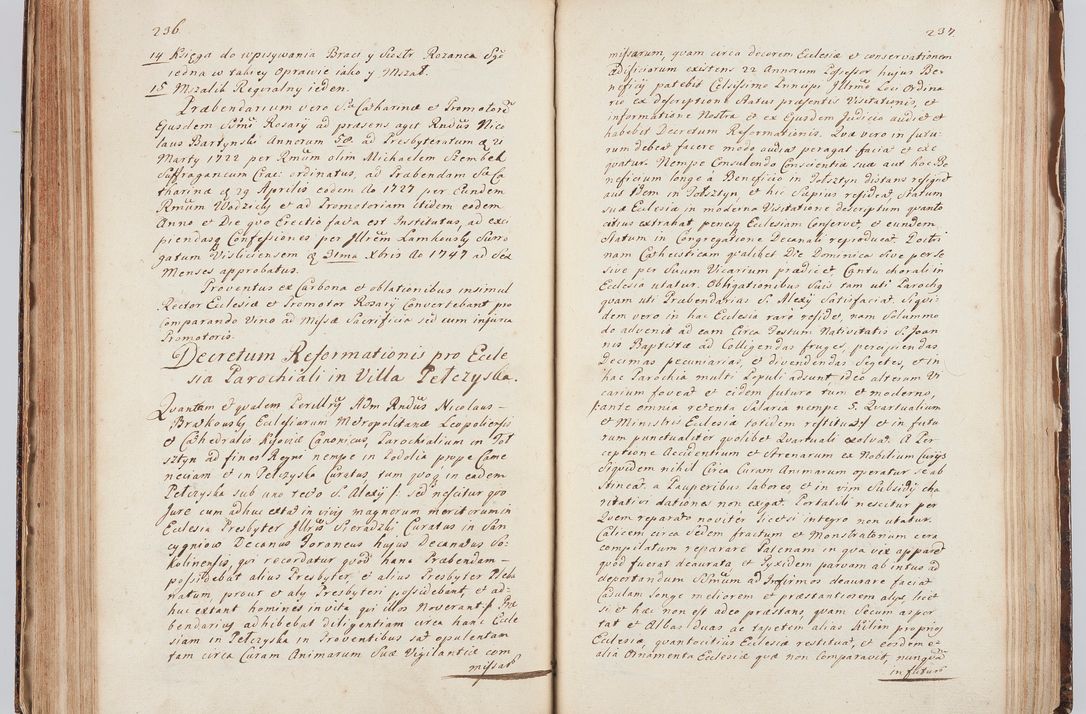 236
14 Księga do wpisywania Braci y Siostr Rozanca Sgo
iedna w takiey Oprawie iako y Mszał.
15 Mszalik Regiralny ieden.
Præbendarium vero S. Catharinæ et Promotorem
Ejusdem SSmi Rosarij ad præsens aget Rndus Nico
laus Bartynski Annorum 58 ad Presbyteratum 21
Marty 1722 per Rmum olim Michaelem Szembek
Suffraganeum Crac: ordinatus, ad Præbendam S. Ca
tharinæ 29 Aprilis eodem do 1727 per Eundem
Rmum Wodzicki et ad Promotoriam itidem eodem
Anno et Die quo Erectio facta est Institutus, ad exci
piendasq Confessiones per Illrem Lamkowsky Surro
gatum Visliciensem Xbris do 1747 ad Sex
Menses approbatus.
Proventus ex Carbona et oblationibus insimul
Rector Ecclesiæ et Promotor Rosarij Convertebant pro
Comparando Vino ad Missæ Sacrificia sed cum injuria
Promotoris.
Decretum Reformationis pro Eccle
sia Parochiali in Villa Pełczyska.
Quantam et qualem Perillris Adm Rndus Nicolaus
Brzkowsky Ecclesiarum Metropolitanæ Leopoliensis
et Cathedralis Kijoviæ Canonicus, Parochialium in Toł
sztyn ad fines Regni nempe in Podolia prope Came
neciam et in Pełczyska Curatus, tum in eadem
Pełczyska sub uno tecto S. Alexij /: sed nescitur quo
Jure cum adhuc extat in vivis magnorum meritorum in
Ecclesia Presbyter Illris Sieradzki Curatus in San
cygniow Decanus Foraneus hujus Decanatus So
kolinensis, qui recordatur quod hanc Præbendam
possidebat alius Presbyter, et alius Presbyter Pleba
natum, prout et alij Presbyteri possidebant, et ad-
huc extant homines in vita qui illos Noverant :/ Præ
bendarius adhibebat diligentiam circa hanc Eccle
siam in Pełczyska in Proventibus sat opulentam
tam circa Curam Animarum Suæ Vigilantiæ com
missarū
237
missarum, quam circa decorem Ecclesiæ et conservationem
Ædificiorum existens 22 Annorum Possessor hujus Be
neficij patebit Celsissimo Principi Illrmo Loci Ordina
rio ex descriptione Status præsentis Visitationis, et
informatione Nostra et ex Ejusdem Judicio audiet et
habebit Decretum Reformationis. Quæ vero in futu-
rum debeat facere modo audiat peragat faciat et exe
quatur. Nempe Consulendo Conscientiæ suæ aut hoc Be
neficium longe à Beneficio in Tołsztyn distans resignet
aut Idem in Tołsztyn et hic Sæpius resideat, Statum
suæ Ecclesiæ in moderna Visitatione descriptum quanto
citius extrahat penesq Ecclesiam Conservet, et eundem
Statum in Congregatione Decanali reproducat. Doctri
nam Catheisticam qualibet Die Dominica sive per se
sive per Suum Vicarium prædicet, Cantu chorali in
Ecclesia utatur. Obligationibus Suis tam uti Parochq
quam uti Præbendarius S. Alexij Satisfaciat. Siqui-
dem vero in hac Ecclesia raro residet, nam Solummo
do advenit ad eam Circa Festum Nativitatis S. Joan
nis Baptistæ ad Colligendas fruges, percipiendas
Decimas pecuniarias, et dividendas Segetes, et in
hac Parochia multi Populi adsunt, ideo alterum Vi
carium foveat et eidem futuro tum et moderno,
ante omnia retenta Salaria nempe 5. Quartualium
et Ministris Ecclesiæ totidem restituat et in futu
rum punctualiter quolibet Quartuali exolvat. A Per
ceptione Accidentium et Strenarum ex Nobilium Curijs
Siquidem nihil Circa Curam Animarum operatur se ab
stineat, a Pauperibus labores, et in vim Subsidij cha
ritativi dationes non exigat. Portatili nescitur per
Quem reparato noviter licet si integro non utatur.
Calicem circa Pedem fractum et Monstratorium cera
compilatum reparare Patenam in qua vix apparet
quod fuerat deaurata et Pyxidem parvam ab intus ad
deportandum SSmum ad Infirmos deaurare faciat
Casulam longe meliorem et præstantiorem alijs, licet
si et hæc non est adeo præstans, quam Secum aspor
tat et Albas duas ac tapetem alias Kilim proprios
Ecclesiæ, quantocitius Ecclesiæ restituat, et eosdem et
alia Ornamenta Ecclesiæ quæ non Comparavit, nunquam
in futurū